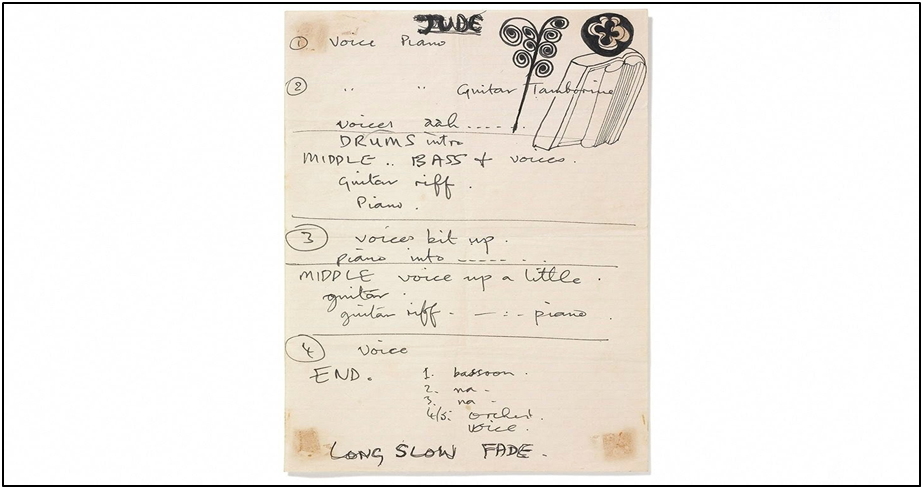 JUDE
① Voice Piano
② " " Guitar Tamborine
voices aah - - - - - .
DRUMS intro
MIDDLE .. BASS + voices.
Guitar riff.
Piano.
③ voices bit up.
piano into - - - - - - .
MIDDLE voice up a little.
guitar.
guitar riff. — : - piano.
④ Voice
END. 1. bassoon.
2. na -
3. na -
4/5. orchest.
voice.
LONG SLOW FADE.